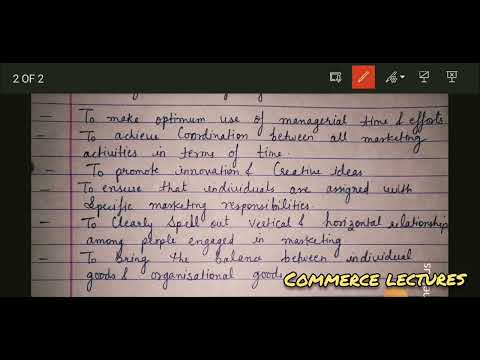 2 OF 2
- To make optimum use of managerial time & efforts
- To achieve Coordination between all marketing
activities in terms of time.
- To promote innovation & Creative ideas
- To ensure that individuals are assigned with
Specific marketing responsibilities.
- To Clearly Spell out vertical & horizontal relationship
among people engaged in marketing
- To bring the balance between individual
goods & organisational goods
COMMERCE LECTURES